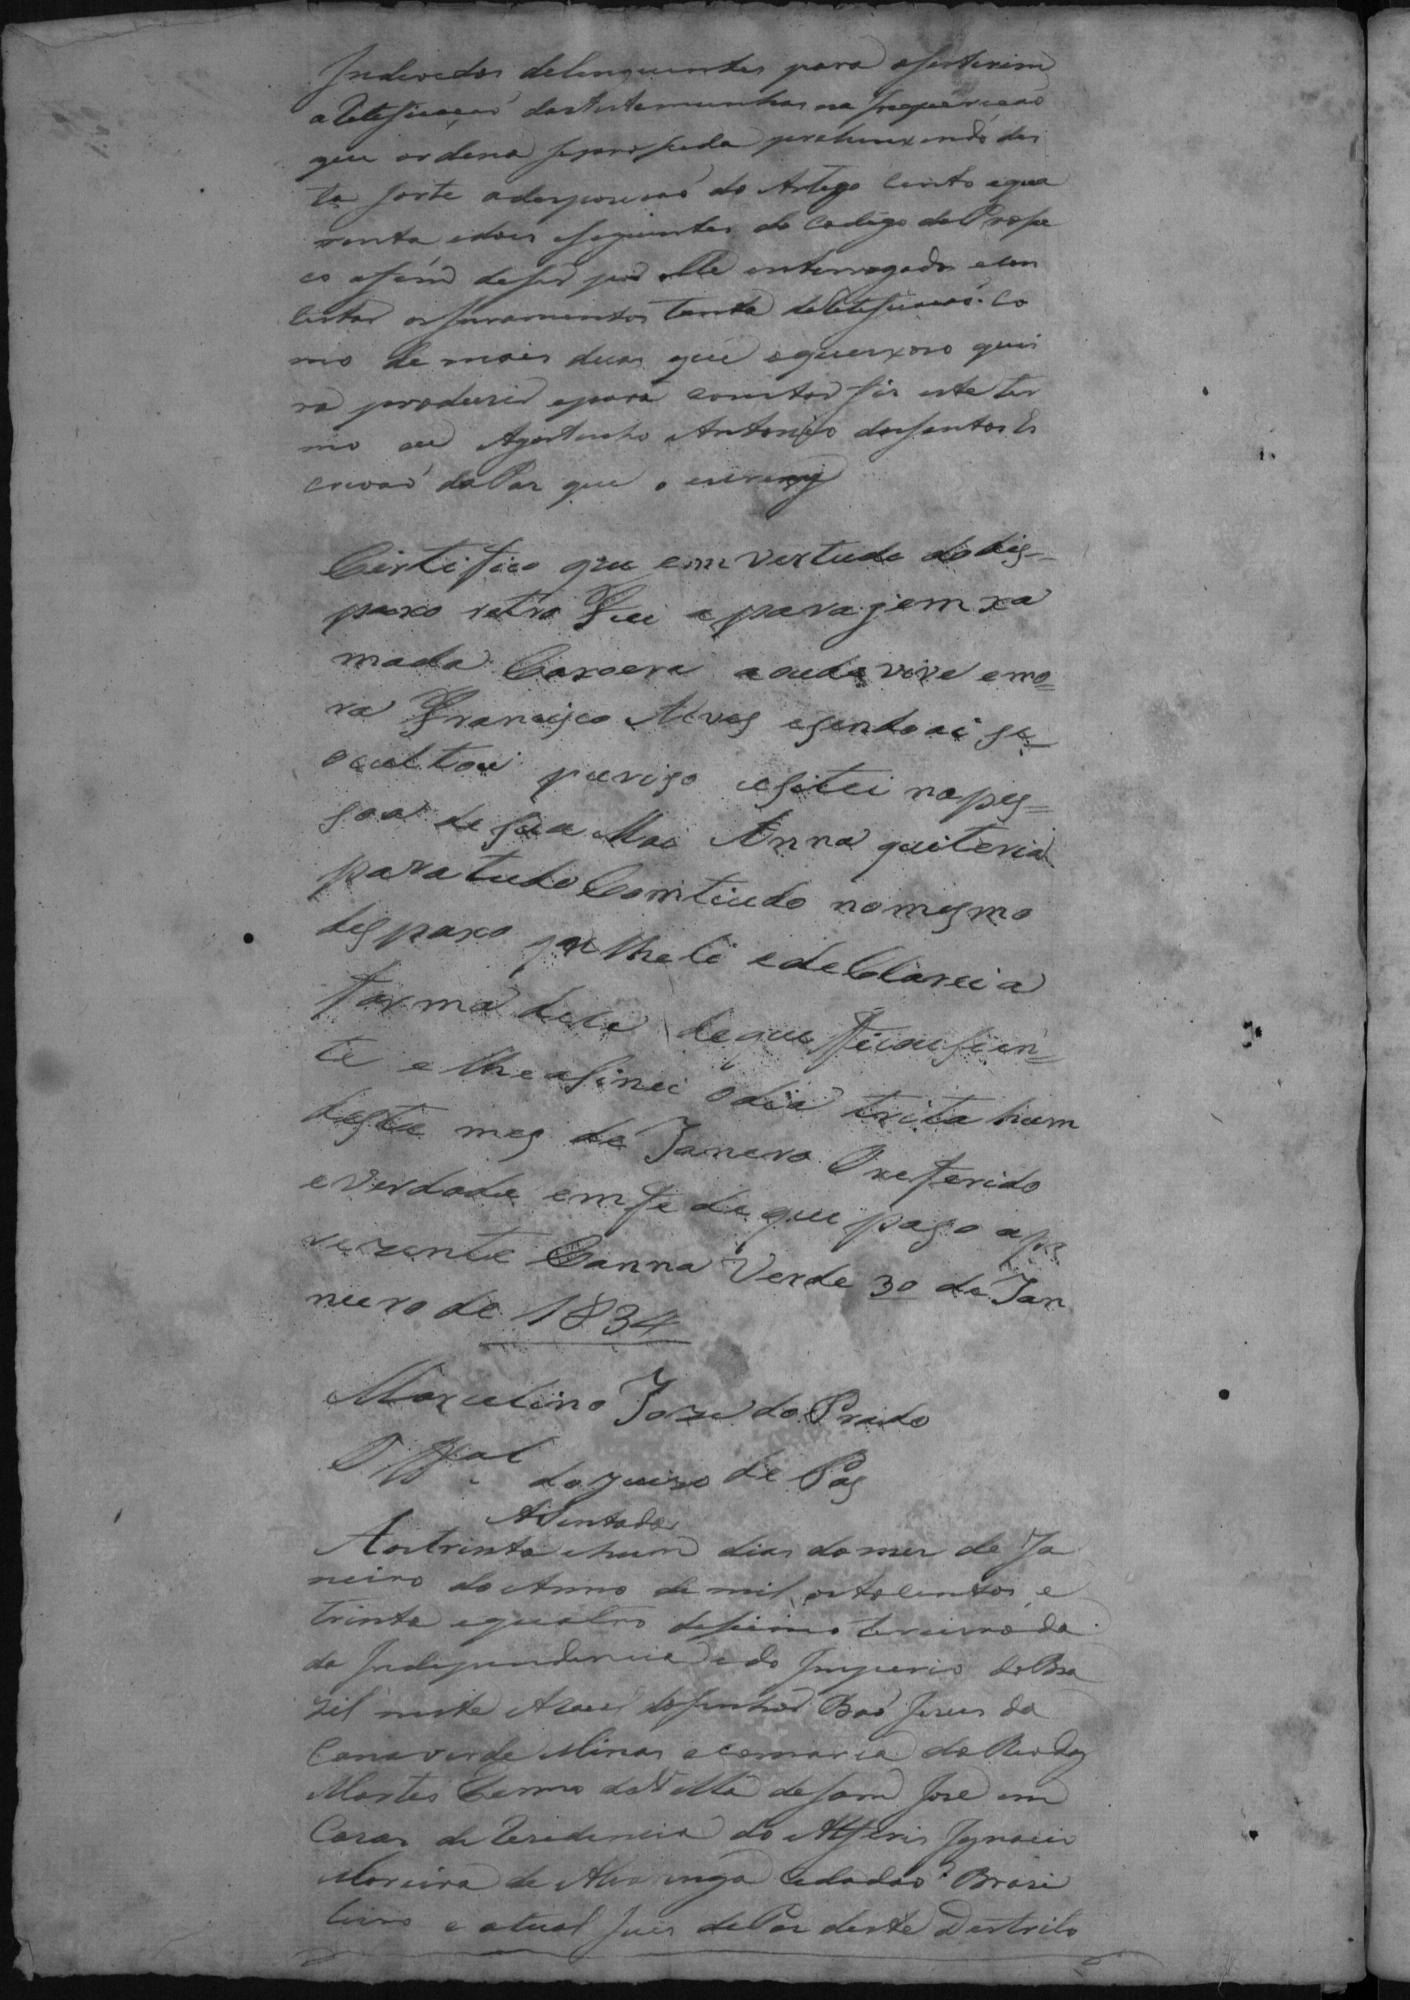 delinquentes para asestirem
das testemunhas na
que ordena preheenxendo des
ta sorte adesposisaõ do Artigo cento equa
renta edois eseguintes do Codigo do Prose
co afim deser por elle enterrogados e con
testar os juramentos tanto Co
mo de mais duas que oqueixoso quei
ra produzir epara constar fis este ter
mo eu Agostinho Antonio dosSantos Es
crivaõ da Paz que o escrevy
Certifico que em vertude do des-
paxo retro Fui a paragem xa
mada Caxoera aonde vive emo=
ra Francisco Alves esendo ai se
ocultou puriso usitei napes=
soa de sua Mai Anna quiteria
para tudo Comtiudo nomesmo
despaxo lhe li edeClarei a
forma dele deque Ficou sien=
te e lheasinei Odia trita hum
deste mes de Janero Oreferido
e verdade em fe de que paso apre
zente Canna Verde 30 de Jan
neuro de 1834
Marcelino Joze do Prado
Offal do juizo de Pas
Asentada
Aos trinta ehum dias do mes de Ja
neiro do Anno de mil oitocentos e
trinta equatro desimo terceiro da
da Independencia edo Imperio do Bra
zil neste Araial doSenhor Bom Jesus da
Canaverde Minas ecomarca do Rio das
Mortes Termo da Villa desam José em
Cazas de Rezidencia do Alferis Ignacio
Moreira de Alvarenga Cidadaõ Brazi
leiro e atual Juis dePaz deste Destrito